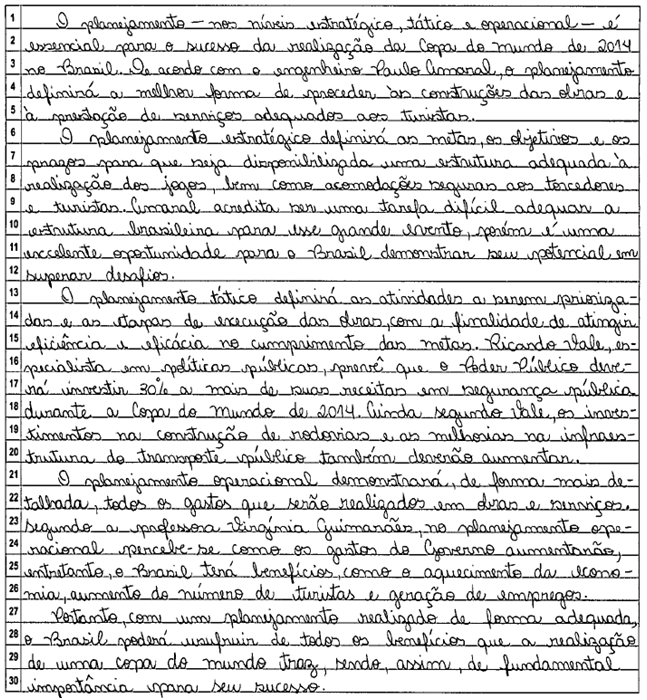 1 O planejamento – nos níveis estratégico, tático e operacional – é
2 essencial para o sucesso da realização da Copa do mundo de 2014
3 no Brasil. De acordo com o engenheiro Paulo Amaral, o planejamento
4 definirá a melhor forma de proceder às construções das obras e
5 à prestação de serviços adequados aos turistas.
6 O planejamento estratégico definirá as metas, os objetivos e os
7 prazos para que seja disponibilizada uma estrutura adequada à
8 realização dos jogos, bem como acomodações seguras aos torcedores
9 e turistas. Amaral acredita ser uma tarefa difícil adequar a
10 estrutura brasileira para esse grande evento, porém é uma
11 excelente oportunidade para o Brasil demonstrar seu potencial em
12 superar desafios.
13 O planejamento tático definirá as atividades a serem prioriza-
14 das e as etapas de execução das obras, com a finalidade de atingir
15 eficiência e eficácia no cumprimento das metas. Ricardo Vale, es-
16 pecialista em políticas públicas, prevê que o Poder Público deve-
17 rá investir 30% a mais de suas receitas em segurança pública
18 durante a Copa do mundo de 2014. Ainda segundo Vale, os inves-
19 timentos na construção de rodovias e as melhorias na infraes-
20 trutura do transporte público também deverão aumentar.
21 O planejamento operacional demonstrará, de forma mais de-
22 talhada, todos os gastos que serão realizados em obras e serviços.
23 Segundo a professora Virgínia Guimarães, no planejamento ope-
24 racional percebe-se como os gastos do Governo aumentarão,
25 entretanto, o Brasil terá benefícios, como o aquecimento da econo-
26 mia, aumento do número de turistas e geração de empregos.
27 Portanto, com um planejamento realizado de forma adequada,
28 o Brasil poderá usufruir de todos os benefícios que a realização
29 de uma copa do mundo traz, sendo, assim, de fundamental
30 importância para seu sucesso.